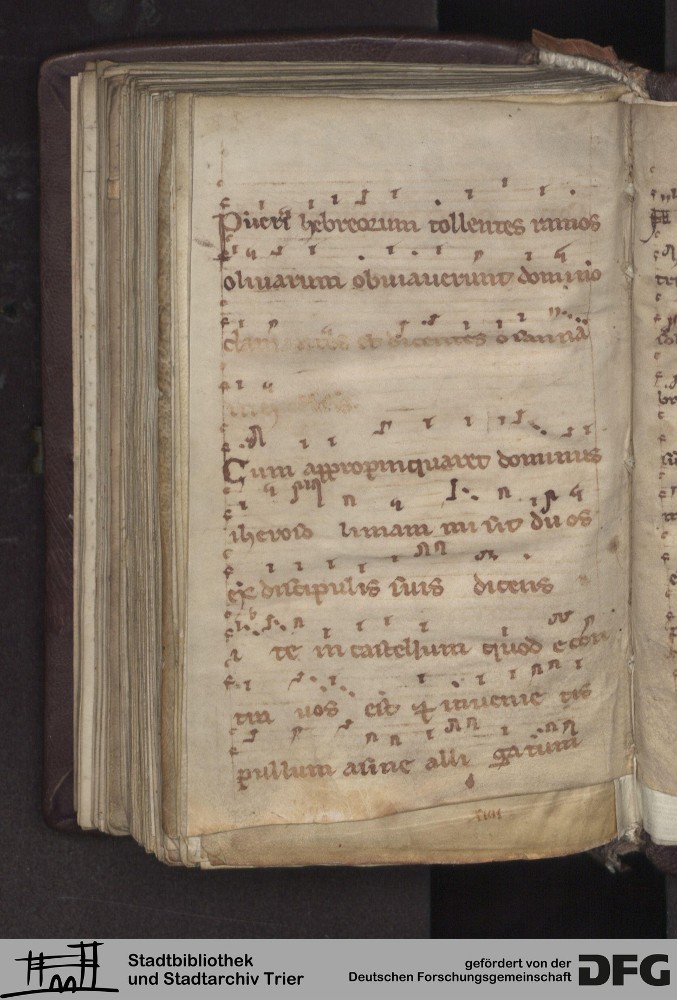 Pueri hebreorum tollentes ramos
olivarum obviaverunt domino
clamantes et dicentes osanna
in excelsis
Cum appropinquaret dominus
iheroso limam misit duos
ex discipulis suis dicens
i te in castellum quod econ
tra vos est & invenie tis
pullum asine alli gatum
Stadtbibliothek
und Stadtarchiv Trier
gefördert von der
Deutschen Forschungsgemeinschaft
DFG